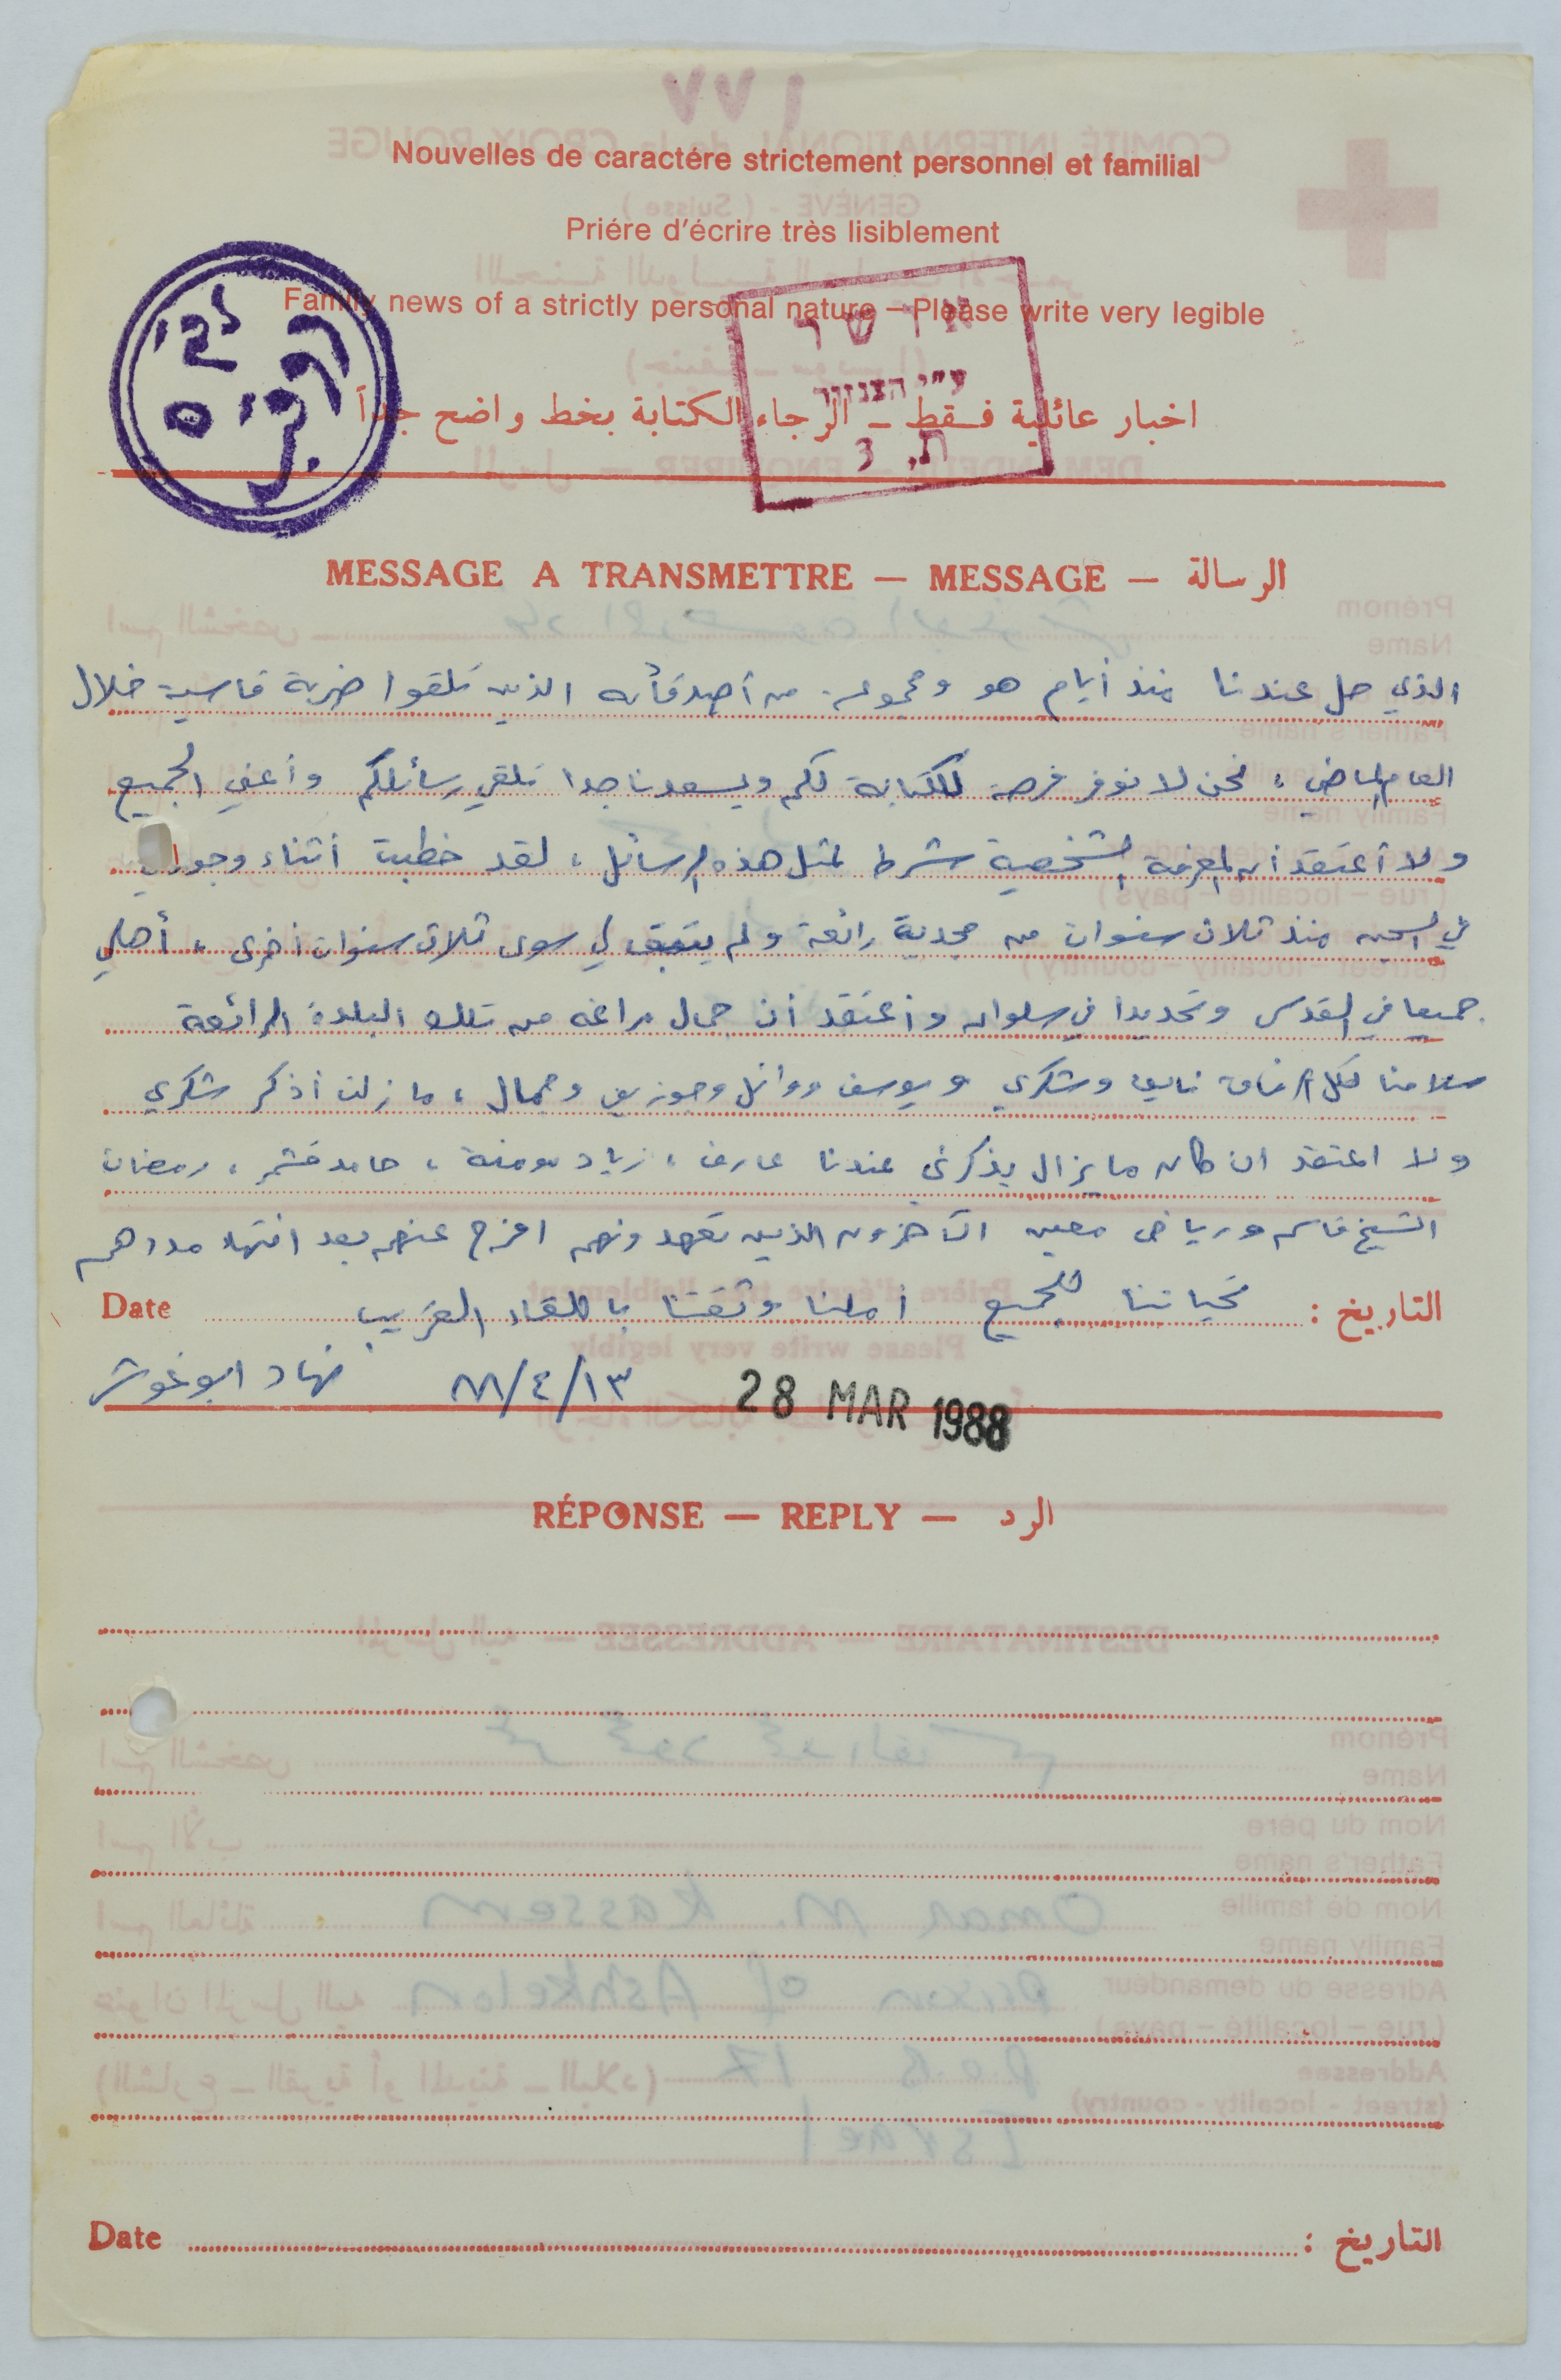 ١٧٧
Nouvelles de caractére strictement personnel et familial
Priére d'écrire très lisiblement
Family news of a strictly personal nature – Please write very legible
اخبار عائلية فقط – الرجاء الكتابة بخط واضح جداً
אושר
ע"י הצנזור
ת. 3
MESSAGE A TRANSMETTRE — MESSAGE — الرسالة
الذي حل عندنا منذ أيام هو ومجموعة من أصدقائه الذين تلقوا ضربة قاسية خلال
العام الماضي، نحن لا نوفر فرصة للكتابة لكم ويسعدنا جدا تلقي رسائلكم وأعني الجميع
ولا أعتقد أن المعرفة الشخصية شرط لمثل هذه الرسائل، لقد خطبت أثناء وجودي
في السجن منذ ثلاث سنوات من مجدية رائعة ولم يتبق لي سوى ثلاث سنوات أخرى، أهلي
جميعا في القدس وتحديدا في سلوان وأعتقد أن جمال مراغه من تلك البلدة الرائعة
سلامنا لكل الرفاق نايف وشكري ويوسف ووائل وجوزيف وجمال، ما زلت أذكر شكري
ولا اعتقد ان كان ما يزال يذكرني عندنا عارف، زياد، حامد، رمضان
الشيخ قاسم ورياض معين الآخرون الذين تعهدونهم افرج عنهم بعد انتهاء مددهم
التاريخ : تحياتنا للجميع أملنا وثقتنا باللقاء القريب Date
١٣/٤/٨٨ نهاد ابو غوش
28 MAR 1988
RÉPONSE — REPLY — الرد
Date التاريخ :